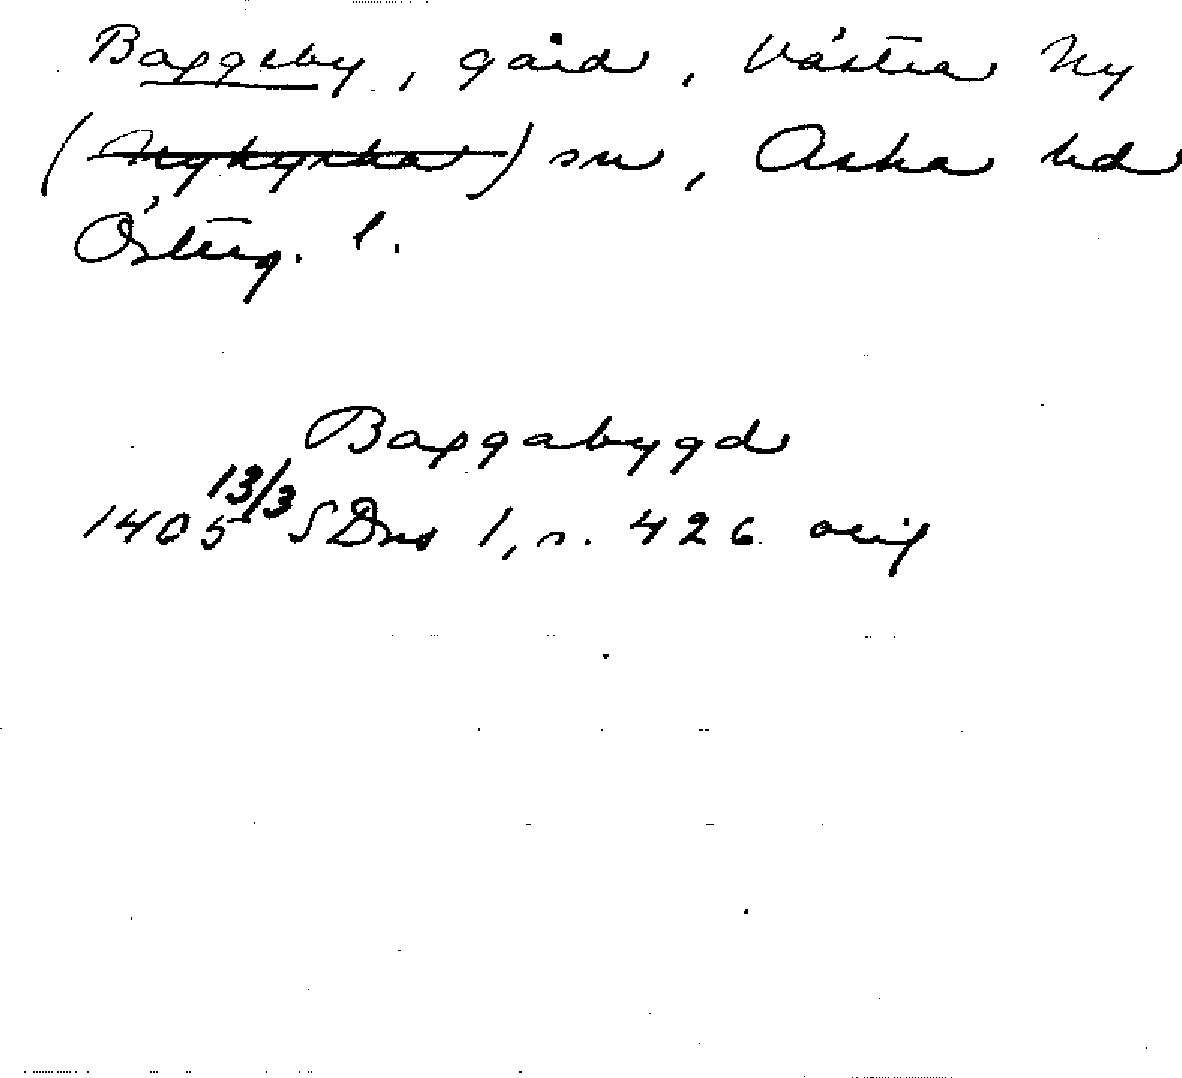 Baggeby, gård, Västra Ny
(Nykyrka) sn, Aska hd
Österg. l.
Baggabygd
1405 13/3 SDns 1, s. 426 orig